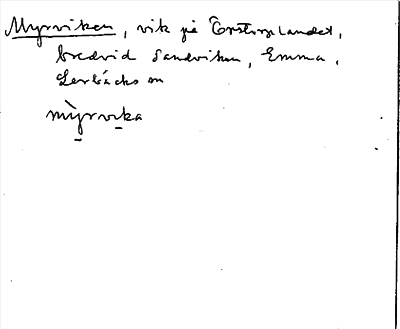 Myrviken, vik på Torstorplandet,
bredvid Sandviken, Emma,
Lerbäcks sn
mỳrvika